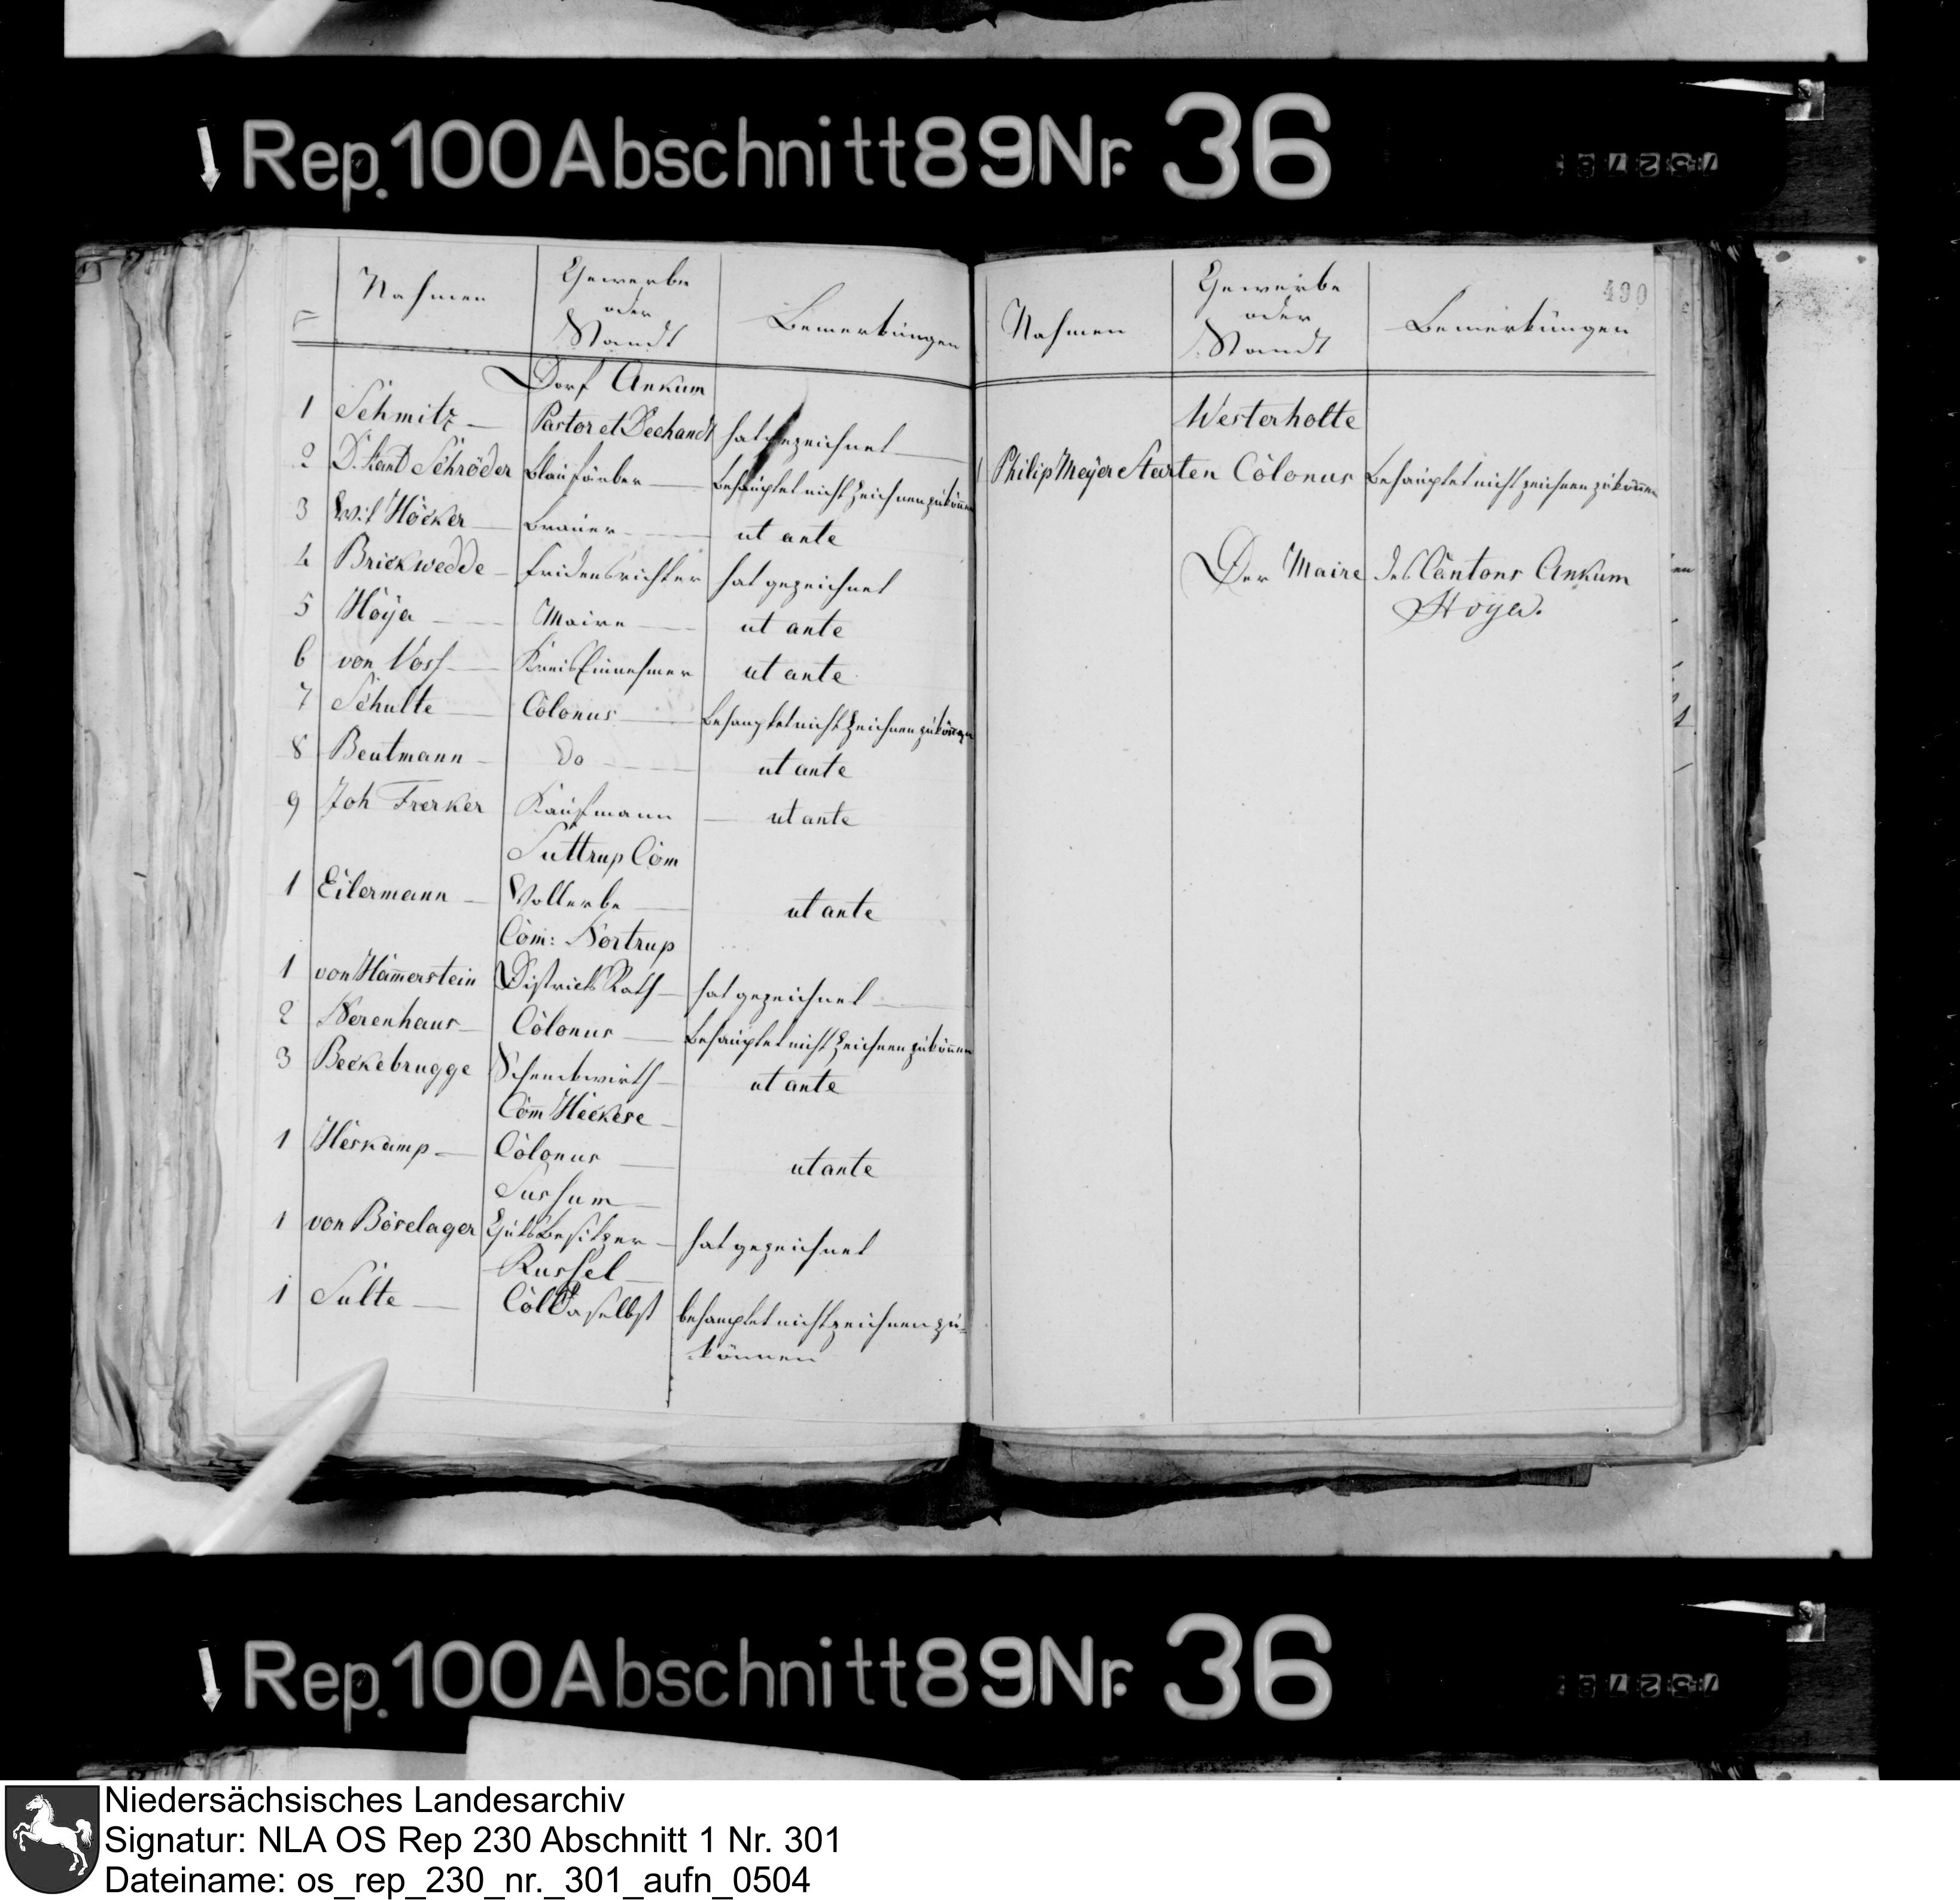 Rep. 100 Abschnitt 89 Nr. 36
Nahmen Gewerbe oder Standt Bemerkungen
Dorf Ankum
1 Schmitz Pastor et Dechandt hat gezeichnet
2 D. Schröder Blaufärber Behauptet nicht zeichnen zu können
3 Wil Höcker Brauer ut ante
4 Brickwedde Fridensrichter hat gezeichnet
5 Höÿa Maire ut ante
6 von Voss Kreis Einnehmer ut ante
7 Schulte Colonus Behauptet nicht zeichnen zu können
8 Beutmann do ut ante
9 Joh Frerker Kaufmann ut ante
Suttrup Com
1 Eilermann Vollerbe ut ante
Com: Nortrup
1 von Ham̅erstein Districts Rath hat gezeichnet
2 Nerenhaus Colonus Behauptet nicht zeichnen zu können
3 Beckebrugge Schenckwirth ut ante
Com̅ Heckese
1 Heskamp Colonus ut ante
Sussum
1 von Böselager Gutsbesitzer hat gezeichnet
Russel
1 Sulte Col Daselbst behauptet nicht zeichnen zu
können
490
Nahmen Gewerbe oder Standt Bemerkungen
Westerholte
1 Philip Meÿer Starten Colonus Behauptet nicht zeichnen zu können
Der Maire des Cantons Ankum
Höÿa.
Rep. 100 Abschnitt 89 Nr. 36
Niedersächsisches Landesarchiv
Signatur: NLA OS Rep 230 Abschnitt 1 Nr. 301
Dateiname: os_rep_230_nr._301_aufn_0504